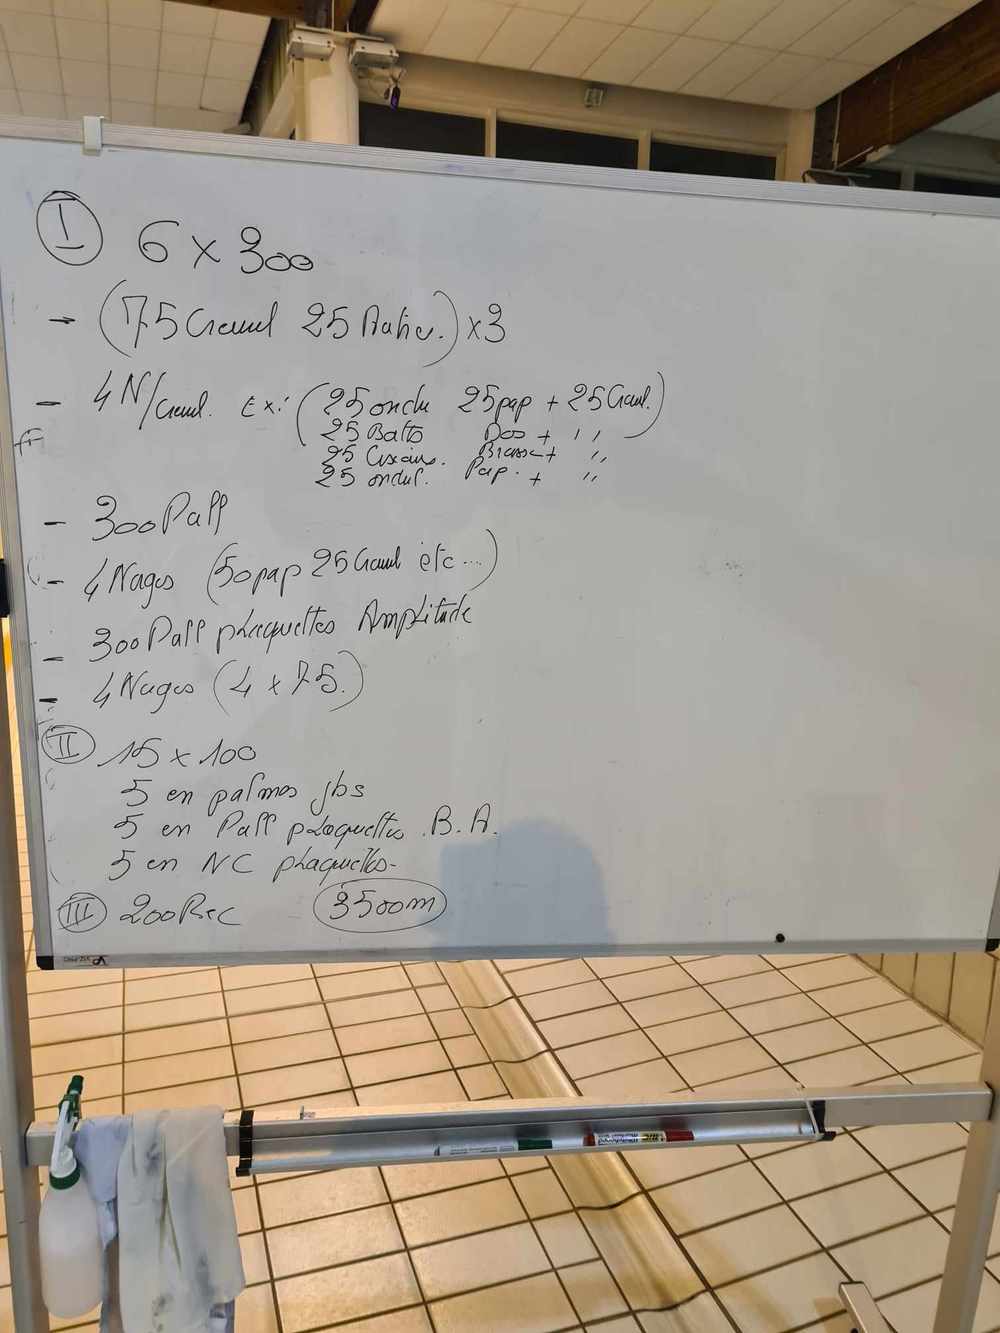 I 6 x 300
- (75 Crawl 25 Autre.) x3
- 4N/Crawl. Ex: (25 ondu 25 pap + 25 Crawl.)
25 Batts Dos + ''
25 Ciseaux. Brasse + ''
25 ondul. Pap. + ''
- 300 Pull
- 4 Nages (50 pap 25 Crawl etc...)
- 300 Pull plaquettes Amplitude
- 4 Nages (4 x 75.)
II 15 x 100
5 en palmes jbs
5 en Pull plaquettes B.A.
5 en NC plaquettes-
III 200 Rec 3500m